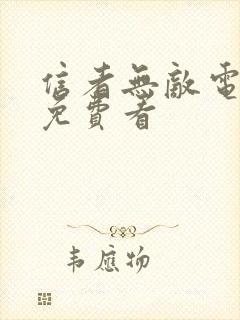 信者無敵電
免費看
韦應物